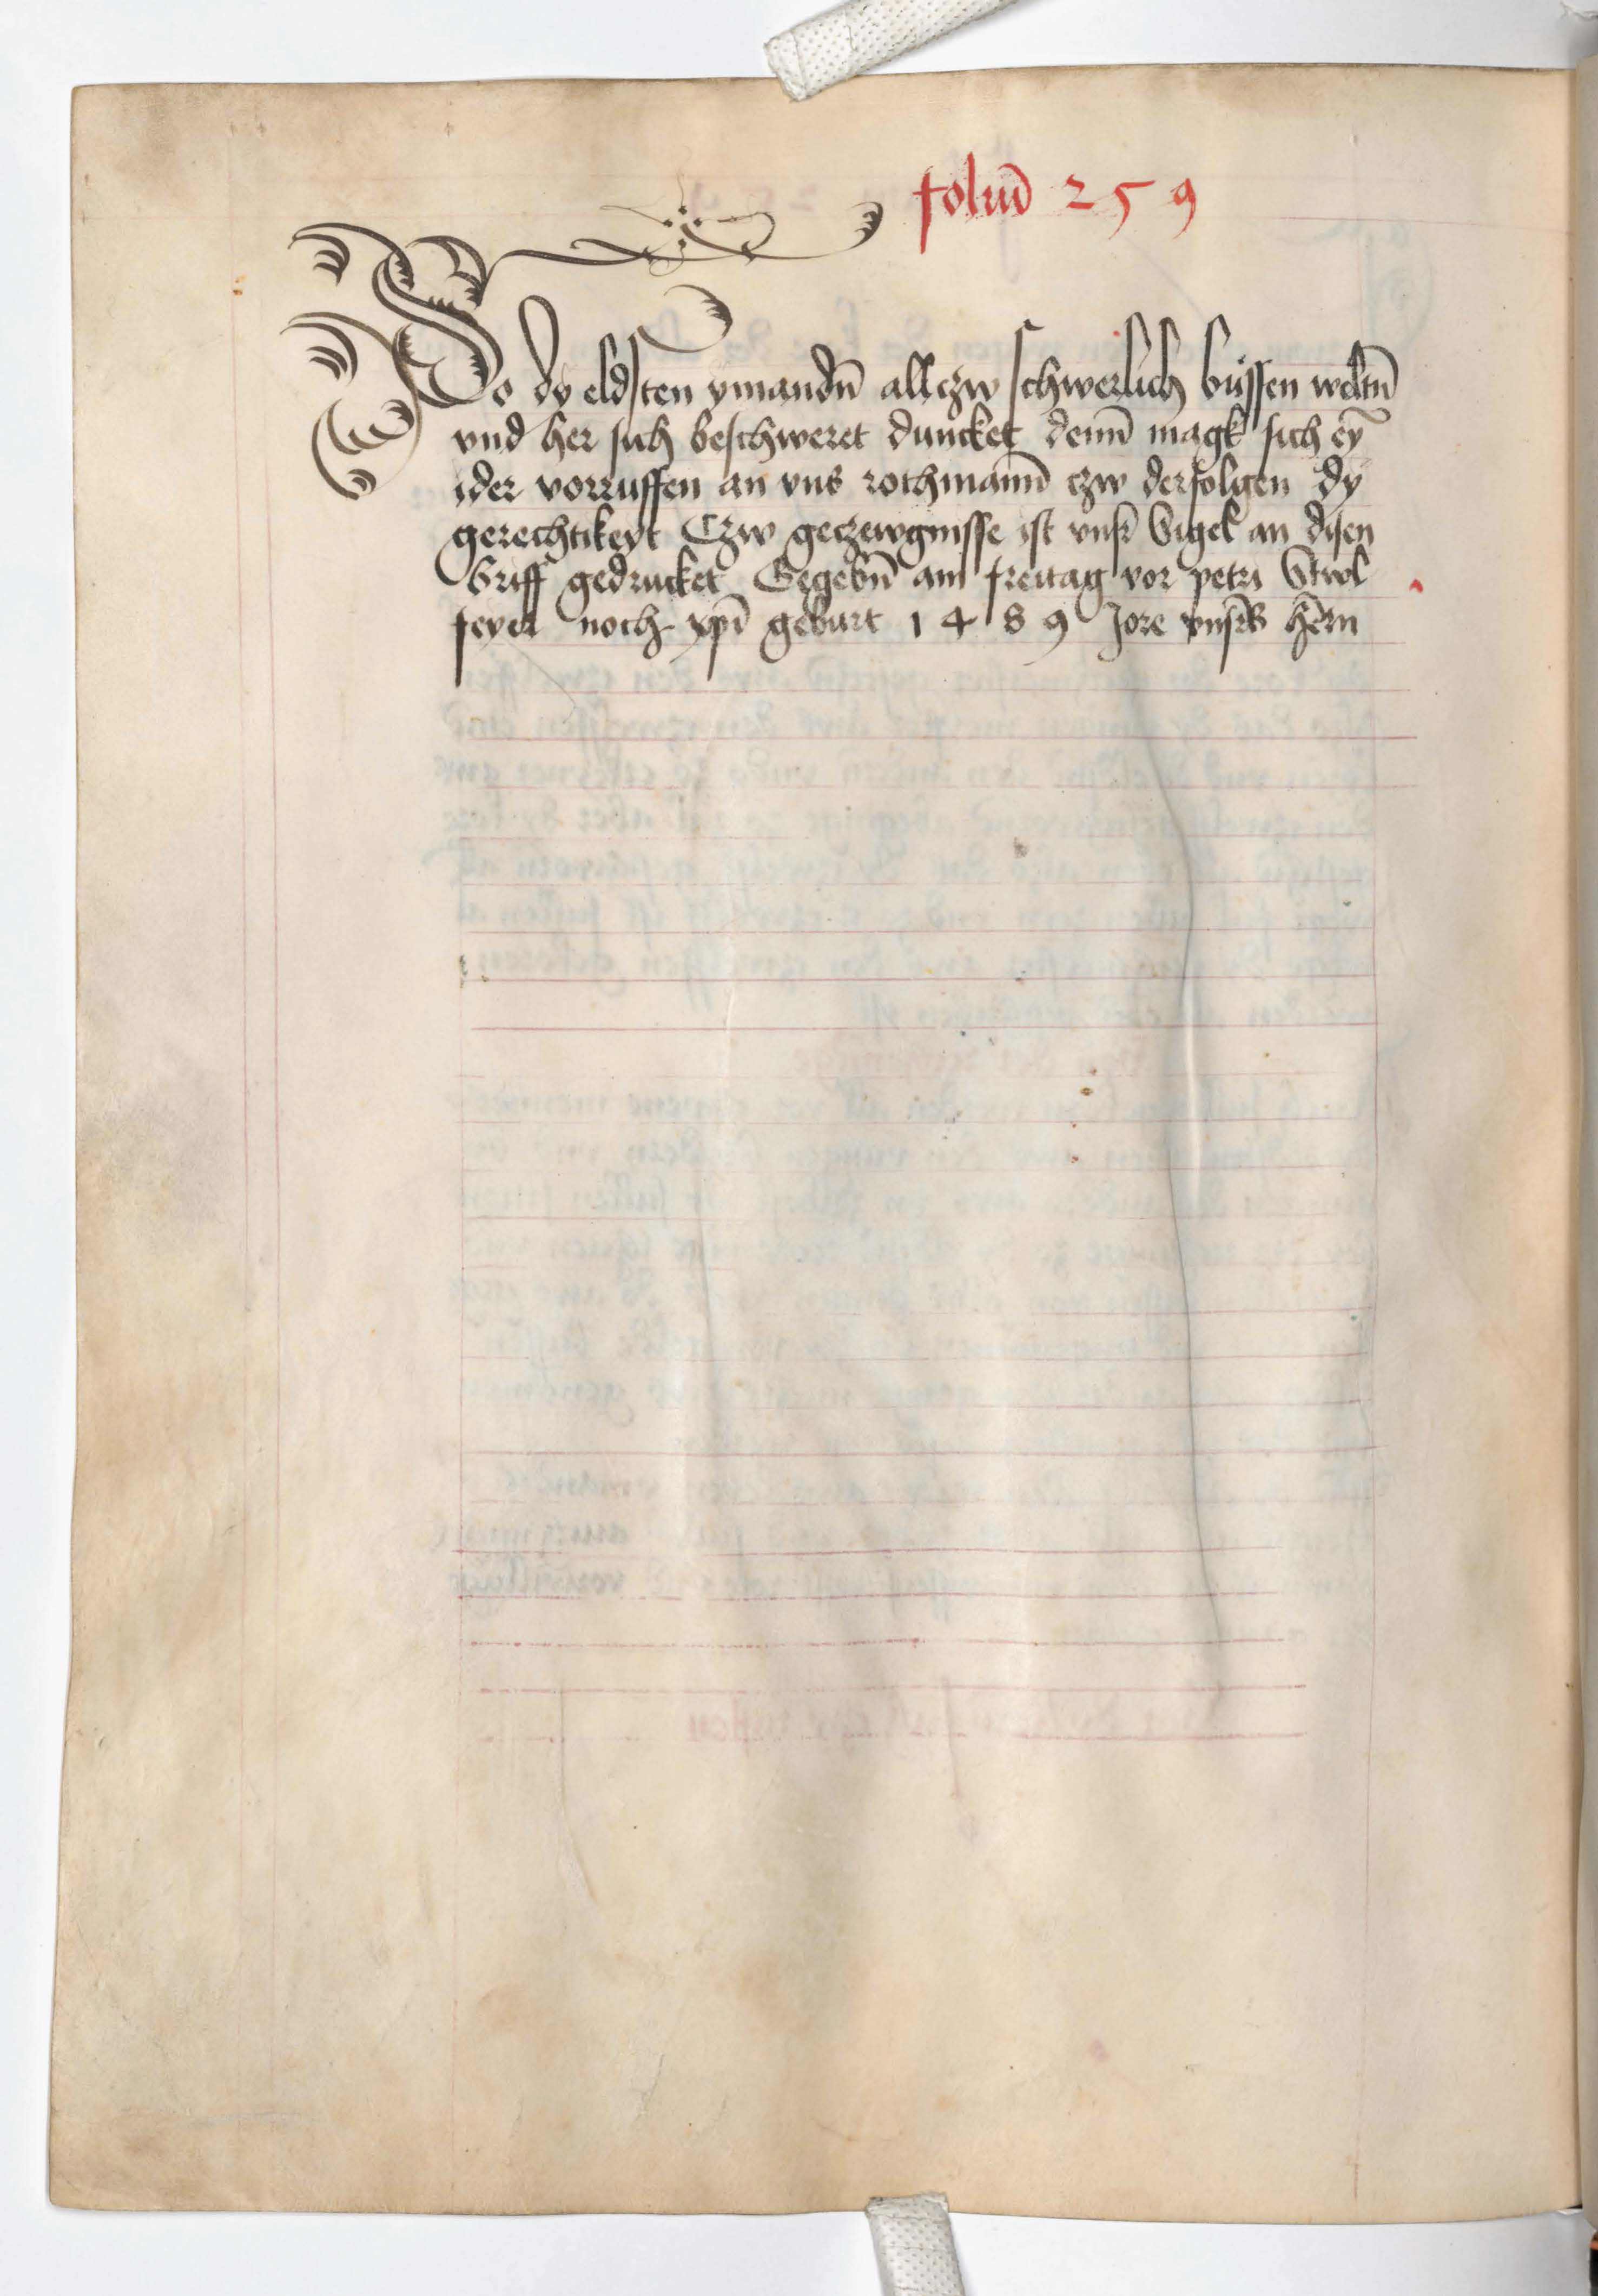 foliū 259
So dy eldsten ymandn̄ allczw schwerlich bussen weltn̄
vnd her sich beschweret duncket denn̄ magk sich eȳ
ider vorruffen an vns rothmann̄ czw derfolgen dy
gerechtikeyt Czw geczewgnisse ist vnsr̄ Sigel an disen
Briff gedrucket Gegebn̄ am freitag vor petri Stwl
feyer noch xp̄i geburt 1489 Jore vnsr̄s hērn